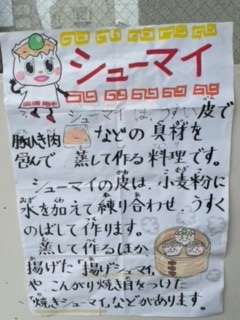 シューマイ
シューマイは、うすい皮で
豚ひき肉などの具材を
包んで 蒸して作る料理です。
シューマイの皮は、小麦粉に
水を加えて練り合わせ、うすく
のばして作ります。
蒸して作るほか、
揚げた“揚げシューマイ„
や こんがり焼き目をつけた
“焼きシューマイ„などがあります。